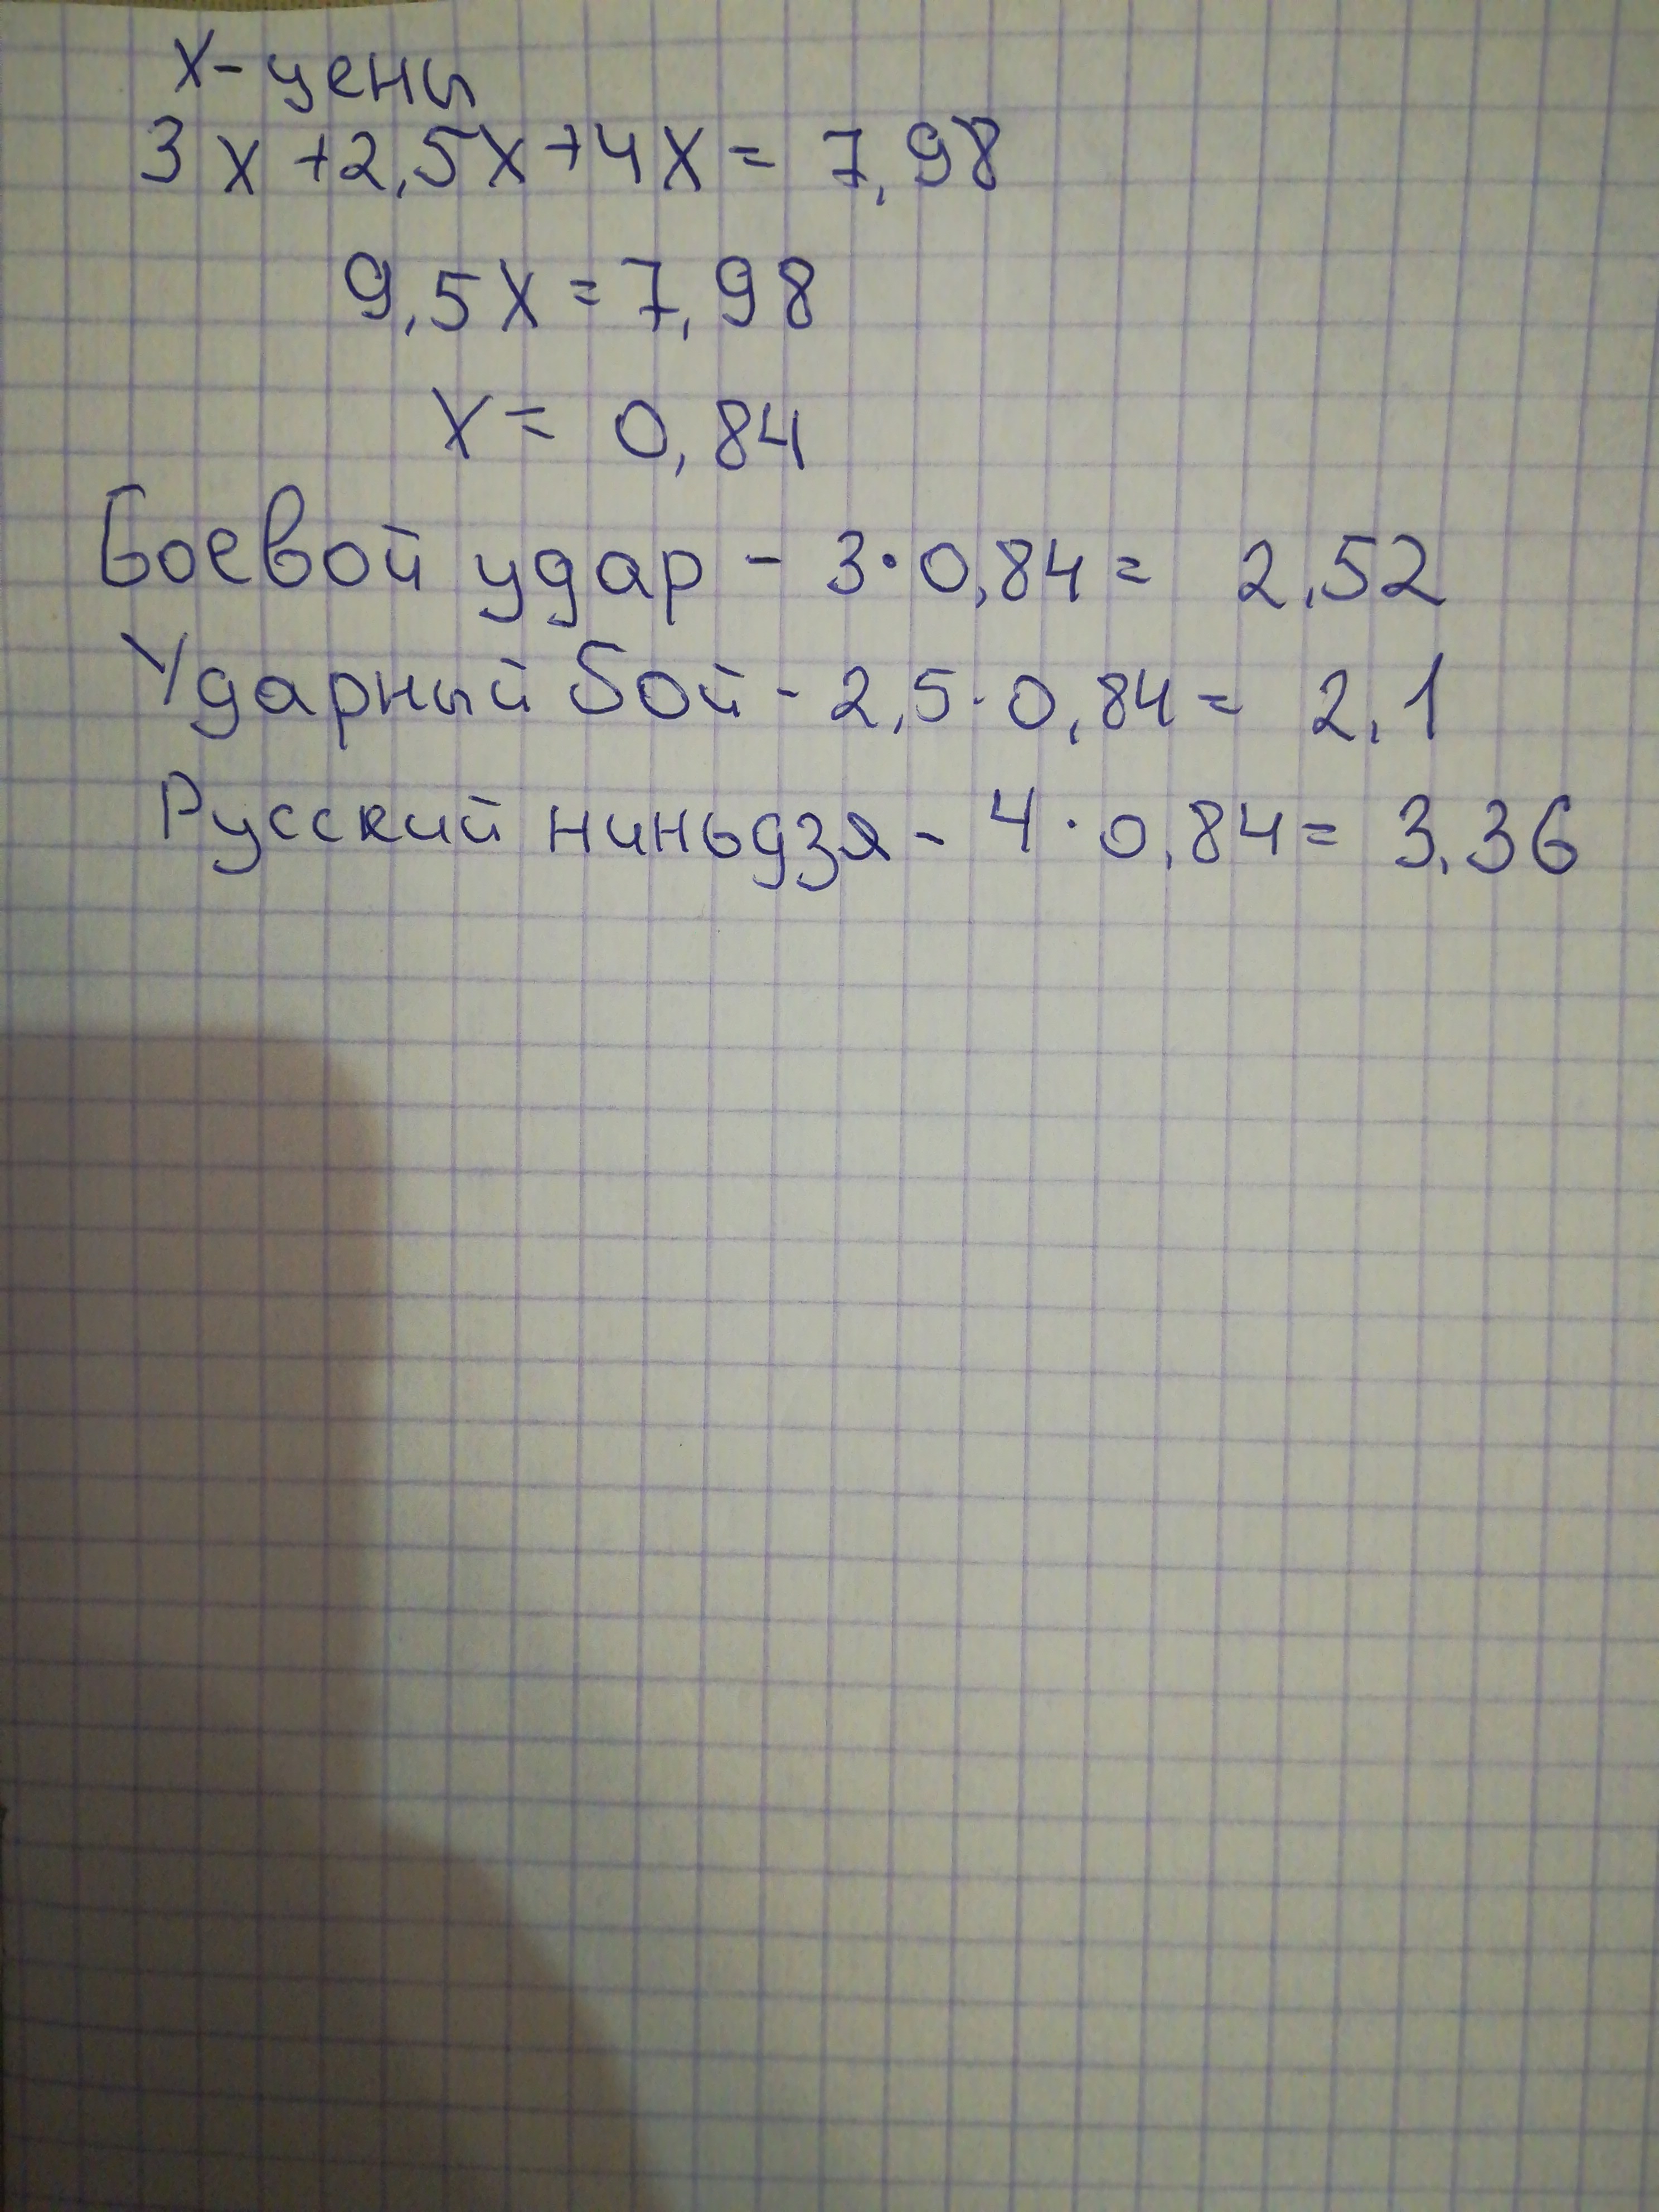 х - цены
3х + 2,5х + 4х = 7,98
9,5х = 7,98
х = 0,84
Боевой удар - 3 · 0,84 = 2,52
Ударный бой - 2,5 · 0,84 = 2,1
Русский ниньдзя - 4 · 0,84 = 3,36